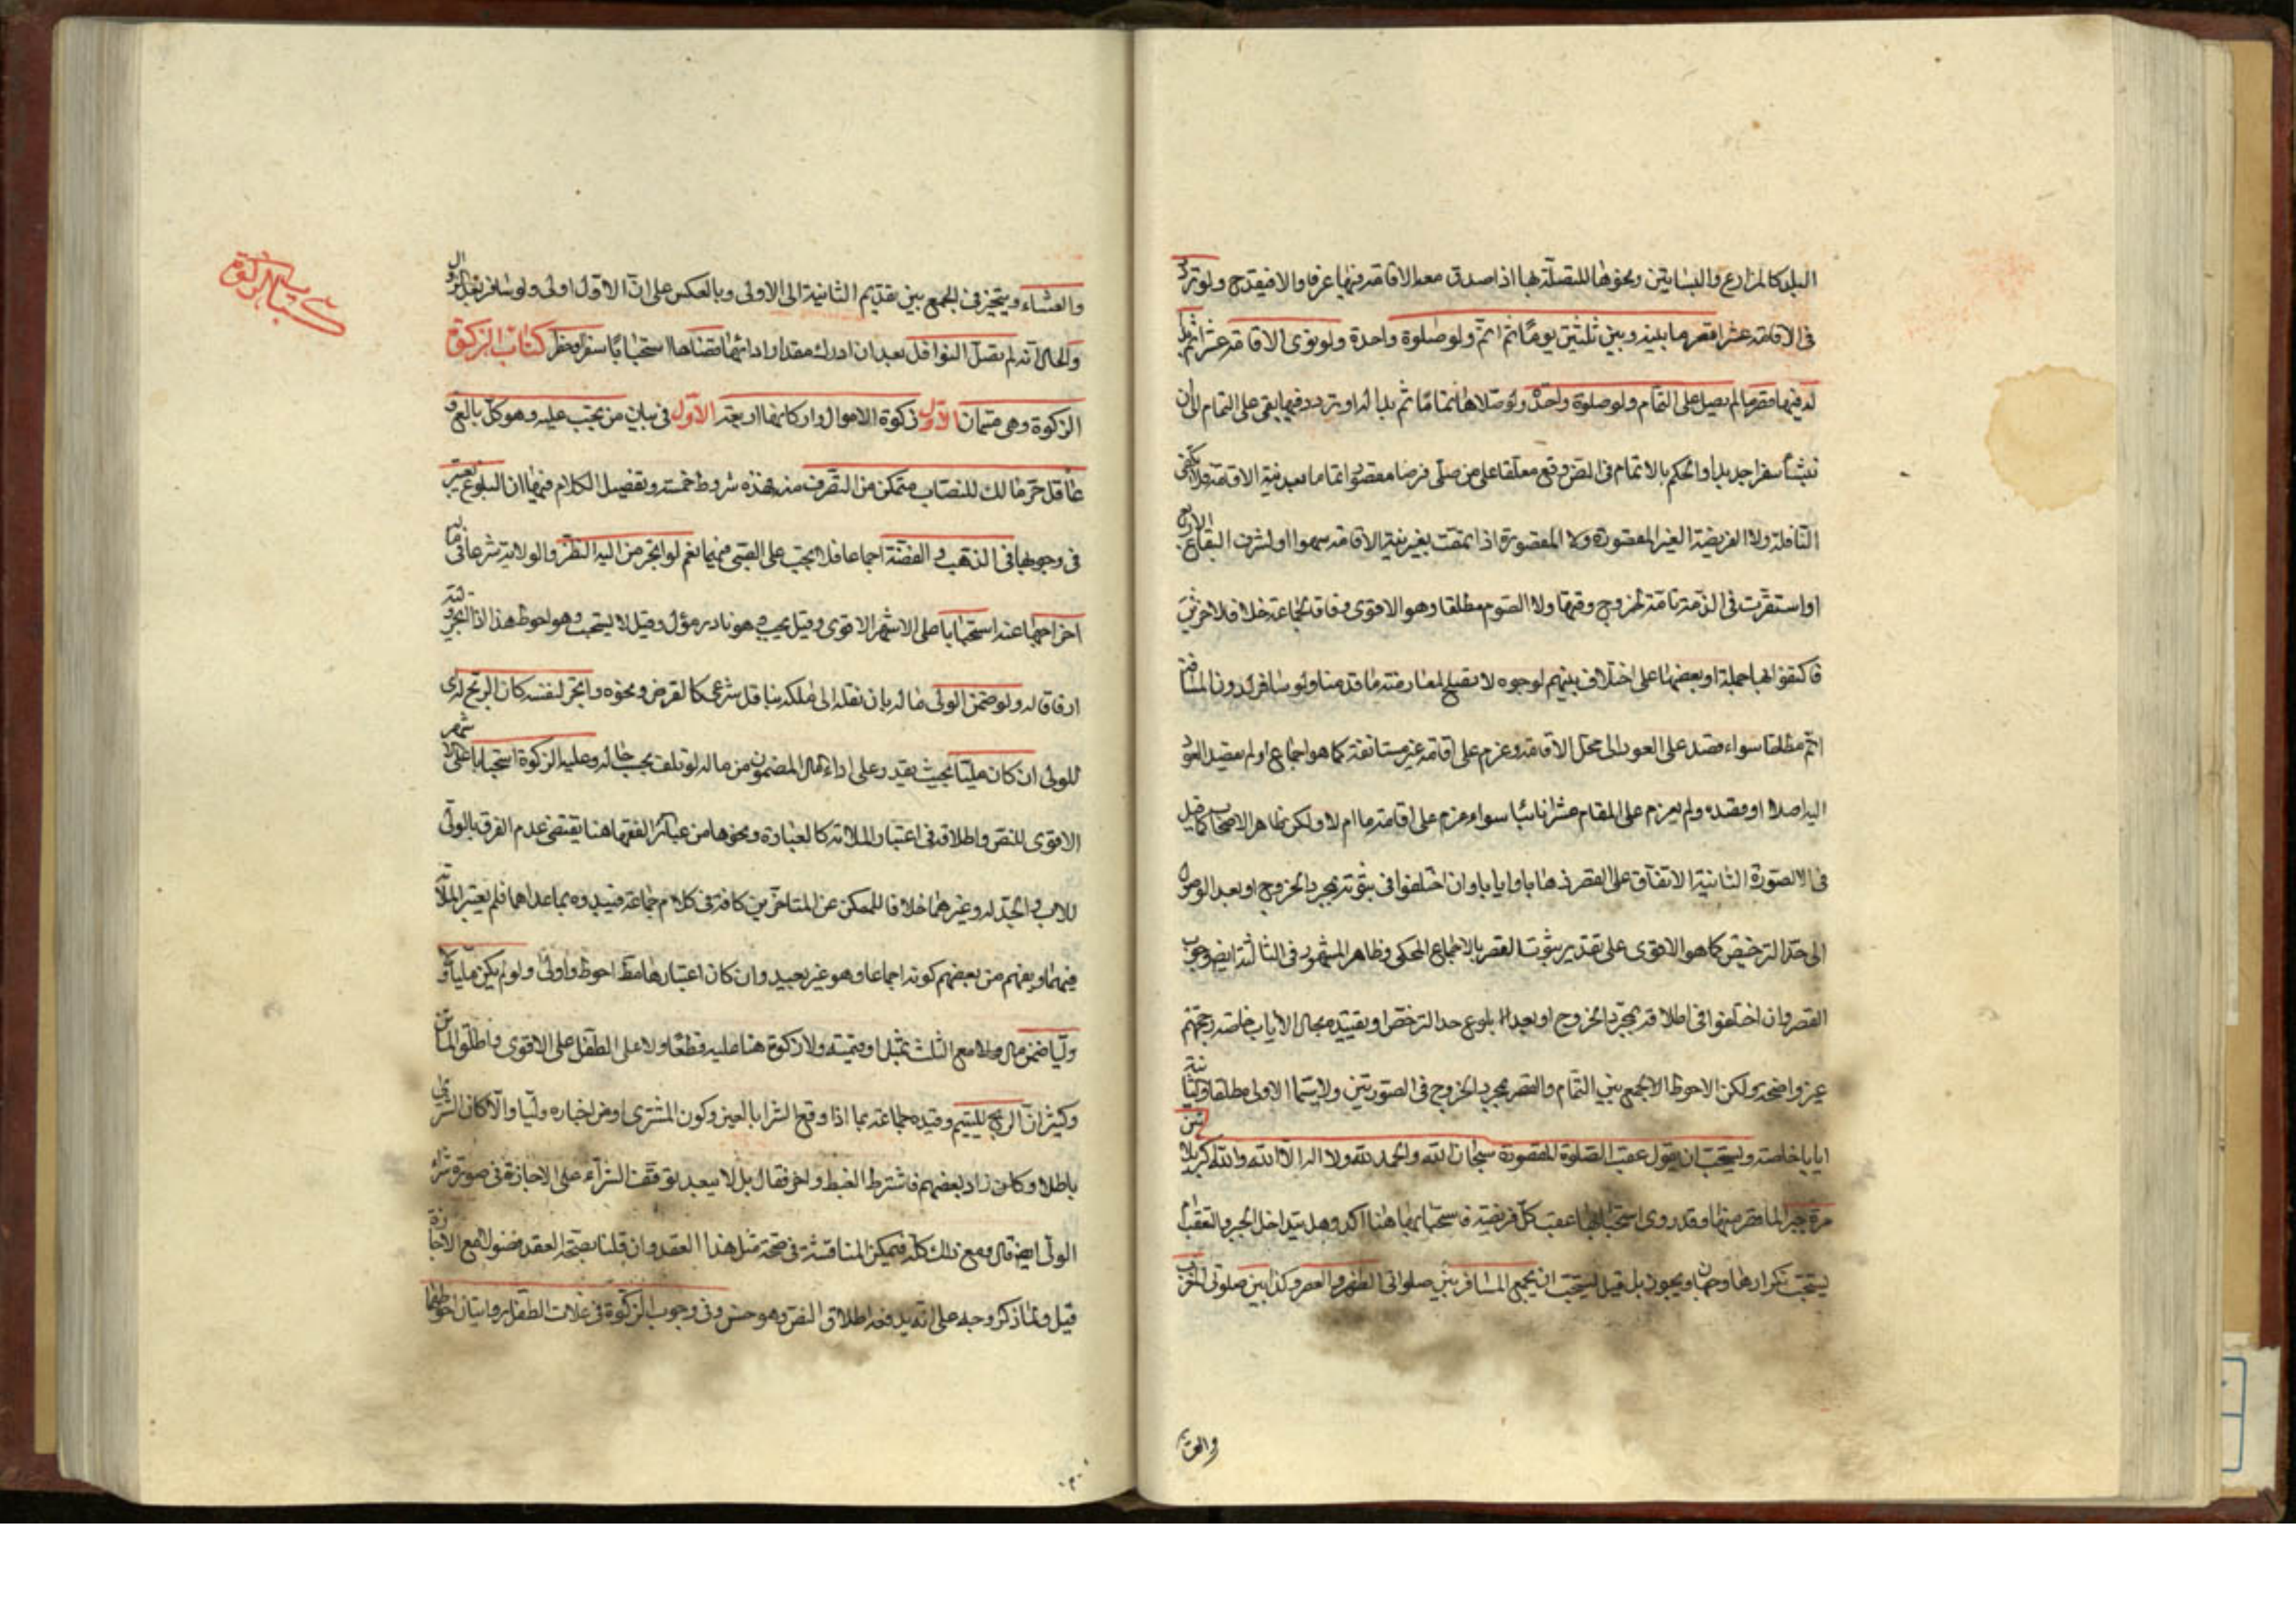 البلد كالمزارع والبساتين ونحوها المتصلة بها اذا صدق معه الاقامة فيها عرفا والا فيقدح ولو تردد
في الاقامة عشرا قصر ما بينه وبين ثلثين يوما ثم اتم ولو صلوة واحدة ولو نوى الاقامة عشرا ثم بدا
له فيها قصر ما لم يصل على التمام ولو صلوة واحدة ولو صلاها تماما ثم بدا له او يتردد فيها بقي على التمام الى ان
ينشأ سفرا جديدا والحكم بالاتمام في النص وقع معلقا على من صلى فرضا مقصورا تماما بعد نية الاقامة فلا يكفي
النافلة ولا الفريضة الغير المقصورة ولا المقصورة اذا تمت بغير نية الاقامة سهوا او لشرف البقاع الاربع
او استقرت في الذمة تامة لخروج وقتها ولا الصوم مطلقا وهو الاقوى وفاقا لجماعة خلافا لاخرين
فاكتفوا بها جملة او بعضها على اختلاف بينهم لوجوه لا تصلح لمعارضة ما قدمنا ولو سافر لدون المسافة
اتم مطلقا سواء قصد على العود الى محل الاقامة وعزم على اقامة عشر مستانفة كما هو اجماع او لم يقصد العود
اليه اصلا او قصده ولم يعزم على المقام عشرا ثانيا سواء عزم على اقامة ما ام لا ولكن ظاهر الاصحاب كما قيل
في الصورة الثانية الاتفاق على القصر ذهابا وايابا وان اختلفوا في ثبوته بمجرد الخروج او بعد الوصول
الى حد الترخص كما هو الاقوى على تقدير ثبوت القصر بالاجماع المحكى وظاهر المشهور في الثالثة ايض وجوب
القصر وان اختلفوا في اطلاقه بمجرد الخروج او بعد بلوغ حد الترخص او تقييده بحال الاياب خاصة وحجتهم
غير واضحة ولكن الاحوط الجمع بين التمام والقصر بمجرد الخروج في الصورتين ولا سيما الاولى مطلقا والثانية
ايابا خاصة ويستحب ان يقول عقب الصلوة المقصورة سبحان الله والحمد لله ولا اله الا الله والله اكبر ثلاثين
مرة جبرا لما قصر منها وقد روى استحبابها عقب كل فريضة فاستحبابها هنا اكد وهل يتداخل الجبر والتعقيب ام
يستحب تكرارها وجهان ويجوز بل قيل يستحب ان يجمع المسافر بين صلواتي الظهر والعصر وكذا بين صلوتي المغرب
والعشاء
والعشاء ويتخير في الجمع بين تقديم الثانية الى الاولى وبالعكس على ان الاول اولى ولو سافر بعد الزوال
والحال انه لم يصل النوافل بعد ان ادرك مقدار ادائها قضاها استحبابا سفرا وحضرا كتاب الزكوة
الزكوة وهي قسمان الاول زكوة الاموال واركانها اربعة الاول في بيان من تجب عليه وهو كل بالغ
عاقل حر مالك للنصاب متمكن من التصرف منه فهذه شروط خمسة وتفصيل الكلام فيها ان البلوغ يعتبر
في وجوبها في الذهب والفضة اجماعا فلا تجب على الصبى فيهما نعم لو اتجر من اليه النظر والولاية شرعا في ماله
اخراجها عنه استحبابا على الاشهر الاقوى وقيل يجب وهو نادر مؤول وقيل لا يستحب وهو احوط هذا اذا اتجر
ارفاقا له ولو ضمن الولى ماله بان نقله الى ملكه بناقل شرعى كالقرض ونحوه واتجر لنفسه كان الربح له اى
للولى ان كان مليا بحيث يقدر على اداء المال المضمون من ماله لو تلف بحسب حاله وعليه الزكوة استحبابا على الاشهر
الاقوى للنص واطلاقه في اعتبار الملائة كالعبارة ونحوها من عبائر الفقهاء هنا يقتضي عدم الفرق بالولى
للاب والجد له وغيرهما خلافا للمحكى عن المتاخرين كافة في كلام جماعة فقيدوه بما عداهما فلم يعتبر الملائة
فيهما وعنهم من بعضهم كونه اجماعا وهو غير بعيد وان كان اعتبارها مط احوط واولى ولو لم يكن مليا ولا
وليا ضمن مال ولا مع التلف بمثله او قيمته ولا زكوة هنا عليه قطعا ولا على الطفل على الاقوى واطلق الماتن
وكثير ان الربح لليتيم وقيده جماعة بما اذا وقع الشرا بالعين وكون المشترى او من اجازه وليا والا كان الشرى
باطلا وكان زاد بعضهم فاشترط الغبط واخر فقال بل لا يبعد توقف الشراء على الاجازة في صورة شراء
الولى ايض قال ومع ذلك كله فيمكن المناقشة في صحة مثل هذا العقد وان قلنا بصحة العقد فضولا مع الاجازة
قيل ولما ذكر وجه على انه يدفعه اطلاق النص وهو حسن وفي وجوب الزكوة في غلات الطفل روايتان احوطهما
كتاب الزكوة